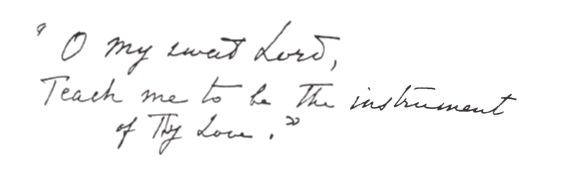 " O my sweet Lord,
Teach me to be the instrument
of Thy Love . "